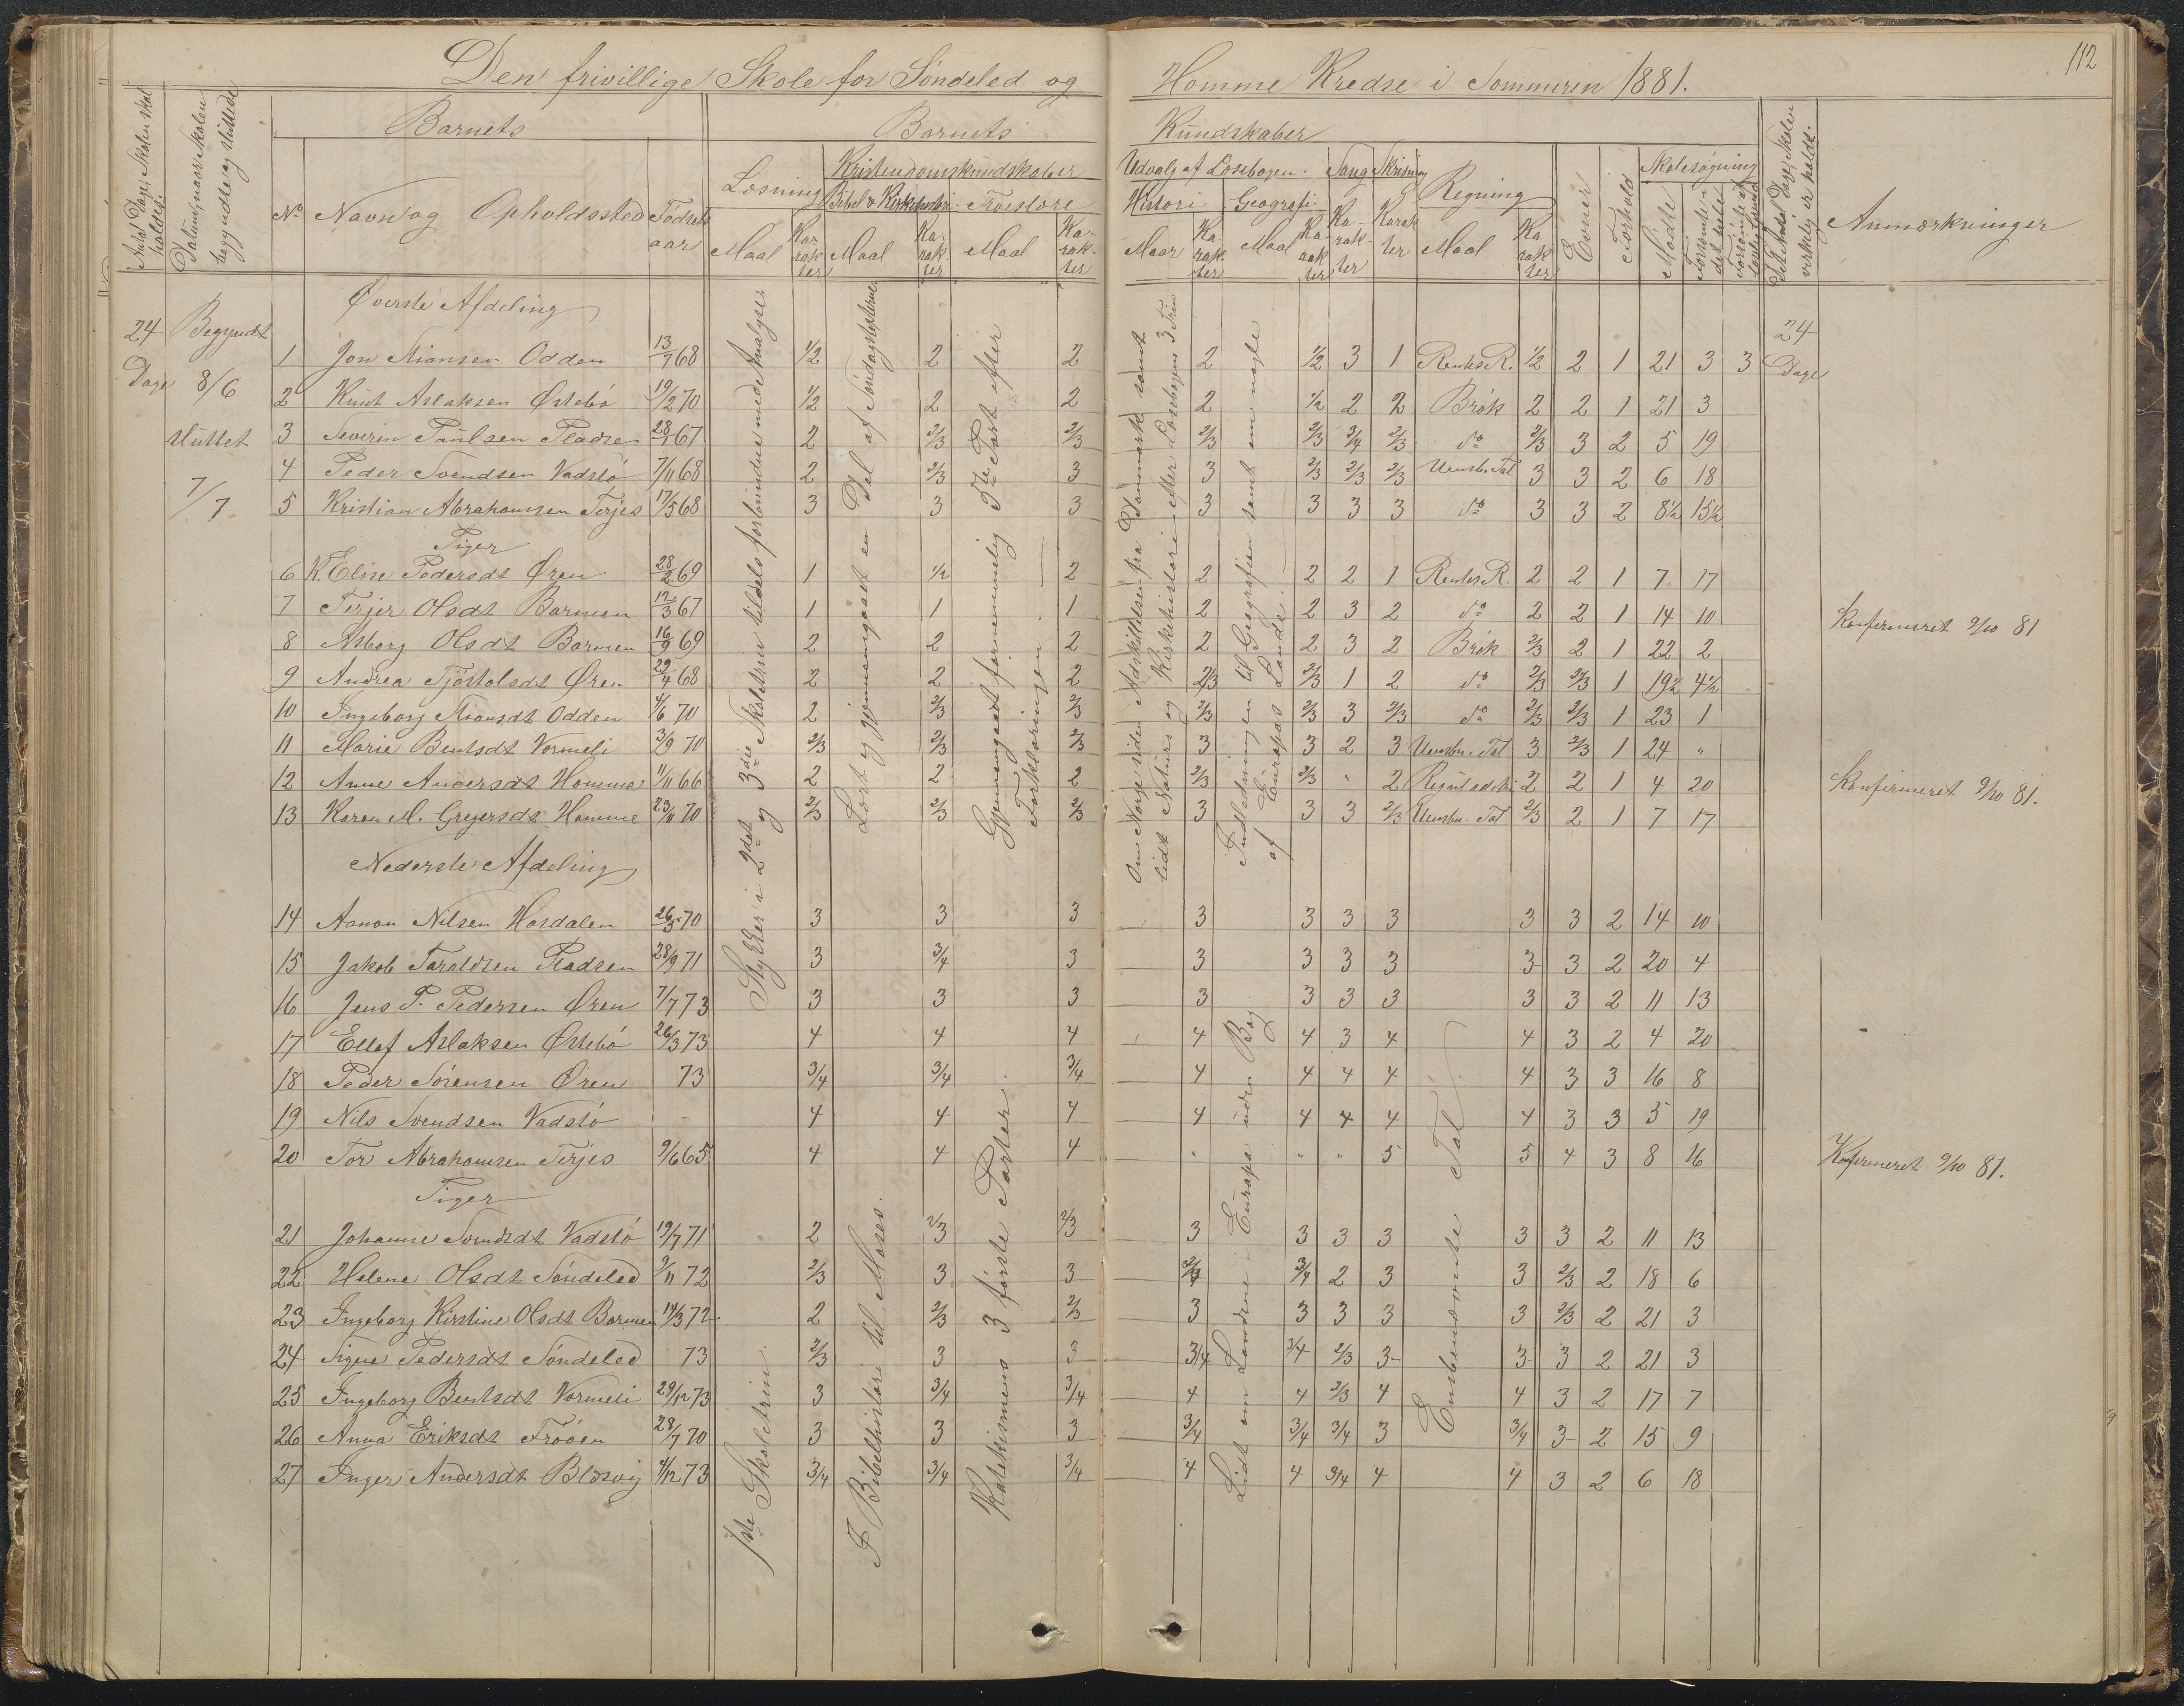 112
Den frivillige Skole for Söndeled og Homme Kredse i Sommeren 1881.
Antal Dage, Skolen skal holdes.
Datum, naar Skolen begyndte og sluttede
Barnets
Barnets Kundskaber
No Navn og Opholdssted Födsels aar
Læsning Kristendomskundskaber
Bibel & Kirkehistori. Troeslære
Udvalg af Læsebogen. Sang Skrivning Regning
Histori. Geografi.
Maal Karakter Maal Karakter Maal Karakter
Maal Karakter Maal Karakter Karakter Karakter Maal Karakter
Evner
Forhold
Skolesøgning
Mödte
Forsömte i det hele
Forsömte af lovlig Grund
Det Antal Dage, Skolen virkelig er holdt.
Anmærkninger
24 Dage
Begyndt 8/6
sluttet 7/7
24 Dage
Øverste Afdeling
1 Jon Niansen Odden 13/7 68 1/2 2 2 2 1/2 3 1 Rentes R. 1/2 2 1 21 3 3
2 Knut Aslaksen Østebö 19/2 70 1/2 2 2 2 1/2 2 2 Brök 2 2 1 21 3
3 Severin Paulsen Pladsen 28/1 67 2 2/3 2/3 2/3 2/3 3/4 2/3 do 2/3 3 2 5 19
4 Peder Svendsen Vadstö 7/11 68 2 2/3 3 3 2/3 2/3 2/3 Uensb. Tal 3 3 2 6 18
5 Kristian Abrahamsen Terjes 17/5 68 3 3 3 3 3 3 3 do 3 3 2 8 1/2 15 1/2
Piger
6 K Elise Pedersdt Øren 28/2 69 1 1/2 2 2 2 2 1 Rentes R. 2 2 1 7 17
7 Terjer Olsdt Barmen 12/3 67 1 1 1 2 2 3 2 do 2 2 1 14 10 Konfirmeret 9/10 81
8 Asborg Olsdt Barmen 16/9 69 2 2 2 2 2 3 2 Brök 2/3 2 1 22 2
9 Andrea Tjöstolsdt Øren 29/4 68 2 2 2 2/3 2/3 1 2 do 2/3 2/3 1 19 1/2 4 1/2
10 Ingeborg Niansdt Odden 4/6 70 2 2/3 2/3 2/3 2/3 3 2/3 do 2/3 2/3 1 23 1
11 Marie Bentsdt Vormeli 3/9 70 2/3 2/3 2/3 3 3 2 3 Uensbn. Tal 3 2/3 1 24 "
12 Anne Andersdt Homme 11/11 66 2 2 2 2/3 2/3 " 2 Reguladetri 2 2 1 4 20 Konfirmeret 9/10 81.
13 Karen M. Gregersdt Homme 23/11 70 2/3 2/3 2/3 3 3 3 2/3 Uensbn. Tal 2/3 2 1 7 17
Stykker i 2det og 3die Skoletrin tildels forbundne med Analyse.
Læst og gjennemgaaet en Del af Söndagsteksterne.
Gjennemgaaet fornemmelig 3die Part efter Forklaringen.
Om Norge siden Adskillelsen fra Danmark samt lidt Naturs og Kirkehistorie efter Læsebogens 3 Trin
Indledningen til Geografien samt om nogle af Europas Lande.
Nederste Afdeling
14 Aanon Nilsen Hasdalen 26/5 70 3 3 3 3 3 3 3 3 3 2 14 10
15 Jakob Taraldsen Pladsen 28/9 71 3 3/4 3 3 3 3 3 3 3 2 20 4
16 Jens P. Pedersen Øren 7/7 73 3 3 3 3 3 3 3 3 3 2 11 13
17 Ellef Aslaksen Østebö 26/3 73 4 4 4 4 4 3 4 4 3 2 4 20
18 Peder Sörensen Øren 73 3/4 3/4 3/4 4 4 4 4 4 3 3 16 8
19 Nils Svendsen Vadstö - 4 4 4 4 4 4 4 4 3 3 5 19
20 Tor Abrahamsen Terjes 9/6 65 4 4 4 " " " 5 5 4 3 8 16 Konfirmeret 9/10 81.
Piger
21 Johanne Svendsdt Vadstö 19/7 71 2 2/3 2/3 3 3 3 3 3 3 2 11 13
22 Helene Olsdt Söndeled 9/11 72 2/3 3 3 3/4 3/4 2 3 3 2/3 2 18 6
23 Ingeborg Kirstine Olsdt Barmen 14/3 72 2 2/3 2/3 3 3 3 3 3 2/3 2 21 3
24 Signe Pedersdt Söndeled 73 2/3 3 3 3/4 3/4 2/3 3 3 3 2 21 3
25 Ingeborg Bentsdt Vormeli 29/12 73 3 3/4 3/4 4 4 2/3 4 4 3 2 17 7
26 Anna Eriksdt Fröen 28/7 70 3 3 3 3/4 3/4 3/4 3 3/4 3 2 15 9
27 Inger Andersdt Blæsvig 4/12 73 3/4 3/4 3/4 4 4 3/4 4 4 3 2 6 18
1ste Skoletrin.
I Bibelhistorie til Moses.
Katekismens 3 förste Parter.
Lidt om Landene i Europa uden Bog
Ensbenævnte Tal.